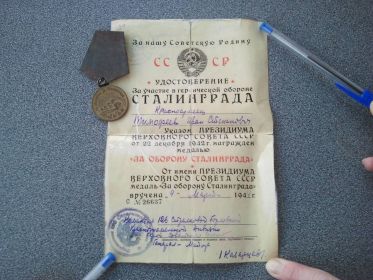 За нашу Советскую Родину
СС СР
УДОСТОВЕРЕНИЕ
За участие в героической обороне
СТАЛИНГРАДА
Красноармеец
Тимофеев Иван
Указом ПРЕЗИДИУМА
ВЕРХОВНОГО СОВЕТА СССР
от 22 декабря 1942 г. награжден
медалью
«ЗА ОБОРОНУ СТАЛИНГРАДА»
От имени ПРЕЗИДИУМА
ВЕРХОВНОГО СОВЕТА СССР
медаль «За Оборону Сталинграда»
вручена 9 194 г.
С № 26637
Стрелковой
Генерал-Майор